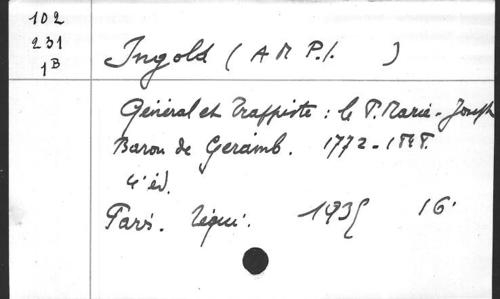 102
231
1B
Ingold (A M P.I. )
Général et Trappiste : le P. Marie-Joseph
Baron de Geramb. 1772-1848.
4e éd.
Paris. Téqui. 1935 16°